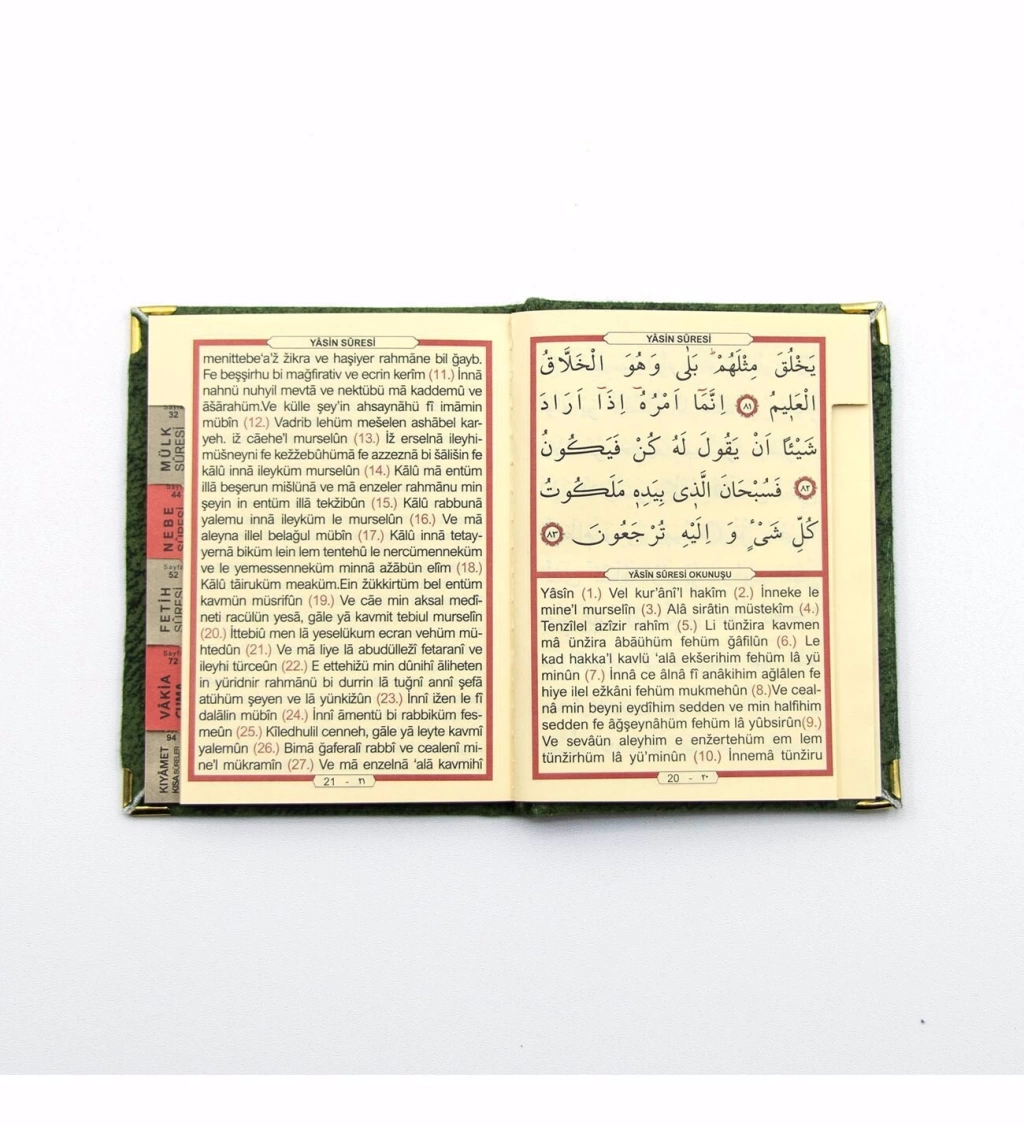 YÂSİN SÛRESİ
يَخْلُقَ مِثْلَهُمْ بَلٰى وَهُوَ الْخَلَّاقُ
الْعَلِيمُ ﴿٨١﴾ اِنَّمَٓا اَمْرُهُٓ اِذَٓا اَرَادَ
شَيْئًا اَنْ يَقُولَ لَهُ كُنْ فَيَكُونُ
﴿٨٢﴾ فَسُبْحَانَ الَّذٖى بِيَدِهٖ مَلَكُوتُ
كُلِّ شَىْءٍ وَ اِلَيْهِ تُرْجَعُونَ ﴿٨٣﴾
YÂSÎN SÛRESİ OKUNUŞU
Yâsîn (1.) Vel kur'ânî'l hakîm (2.) İnneke le
mine'l murselîn (3.) Alâ sirâtin müstekîm (4.)
Tenzîlel azîzir rahîm (5.) Li tünžira kavmen
mâ ünžira âbâühüm fehüm ğâfilûn (6.) Le
kad hakka'l kavlü 'alâ ekšerihim fehüm lâ yü
minûn (7.) İnnâ ce âlnâ fî anâkihim ağlâlen fe
hiye ilel ežkâni fehüm mukmehûn (8.)Ve ceal-
nâ min beyni eydîhim sedden ve min halfihim
sedden fe âğşeynâhüm fehüm lâ yûbsirûn(9.)
Ve sevâün aleyhim e enžertehüm em lem
tünžirhüm lâ yü'minûn (10.) İnnemâ tünžiru
20 - ٢٠
YÂSİN SÛRESİ
menittebe'a'ž žikra ve haşiyer rahmâne bil ğayb.
Fe beşşirhu bi mağfirativ ve ecrin kerîm (11.) İnnâ
nahnü nuhyil mevtâ ve nektübü mâ kaddemû ve
âšârahüm.Ve külle şey'in ahsaynâhü fî imâmin
mübîn (12.) Vadrib lehüm mešelen ashâbel kar-
yeh. iž câehe'l murselûn (13.) İž erselnâ ileyhi-
müšneyni fe kežžebûhümâ fe azzeznâ bi šâlišin fe
kâlû innâ ileyküm murselûn (14.) Kâlû mâ entüm
illâ beşerun mišlünâ ve mâ enzeler rahmânu min
şeyin in entüm illâ tekžibûn (15.) Kâlû rabbunâ
yalemu innâ ileyküm le murselûn (16.) Ve mâ
aleyna illel belağul mübîn (17.) Kâlû innâ tetay-
yernâ biküm lein lem tentehû le nercümenneküm
ve le yemessenneküm minnâ ažâbün elîm (18.)
Kâlû tâiruküm meaküm.Ein žükkirtüm bel entüm
kavmün müsrifûn (19.) Ve câe min aksal medî-
neti racülün yesâ, gâle yâ kavmit tebiul murselîn
(20.) İttebiû men lâ yeselükum ecran vehüm mü-
htedûn (21.) Ve mâ liye lâ abudülležî fetaranî ve
ileyhi türceûn (22.) E ettehižü min dûnihî âliheten
in yüridnir rahmânü bi durrin lâ tuğnî annî şefâ
atühüm şeyen ve lâ yünkižûn (23.) İnnî ižen le fî
dalâlin mübîn (24.) İnnî âmentü bi rabbiküm fes-
meûn (25.) Kîledhulil cenneh, gâle yâ leyte kavmî
yalemûn (26.) Bimâ ğaferalî rabbî ve cealenî mi-
ne'l mükramîn (27.) Ve mâ enzelnâ 'alâ kavmihî
21 - ٢١
Sayfa
32
MÜLK
SÛRESİ
44
NEBE
SÛRESİ
52
FETİH
SÛRESİ
72
VÂKIA
CUMA
94
KIYÂMET
KISA SÛRELER